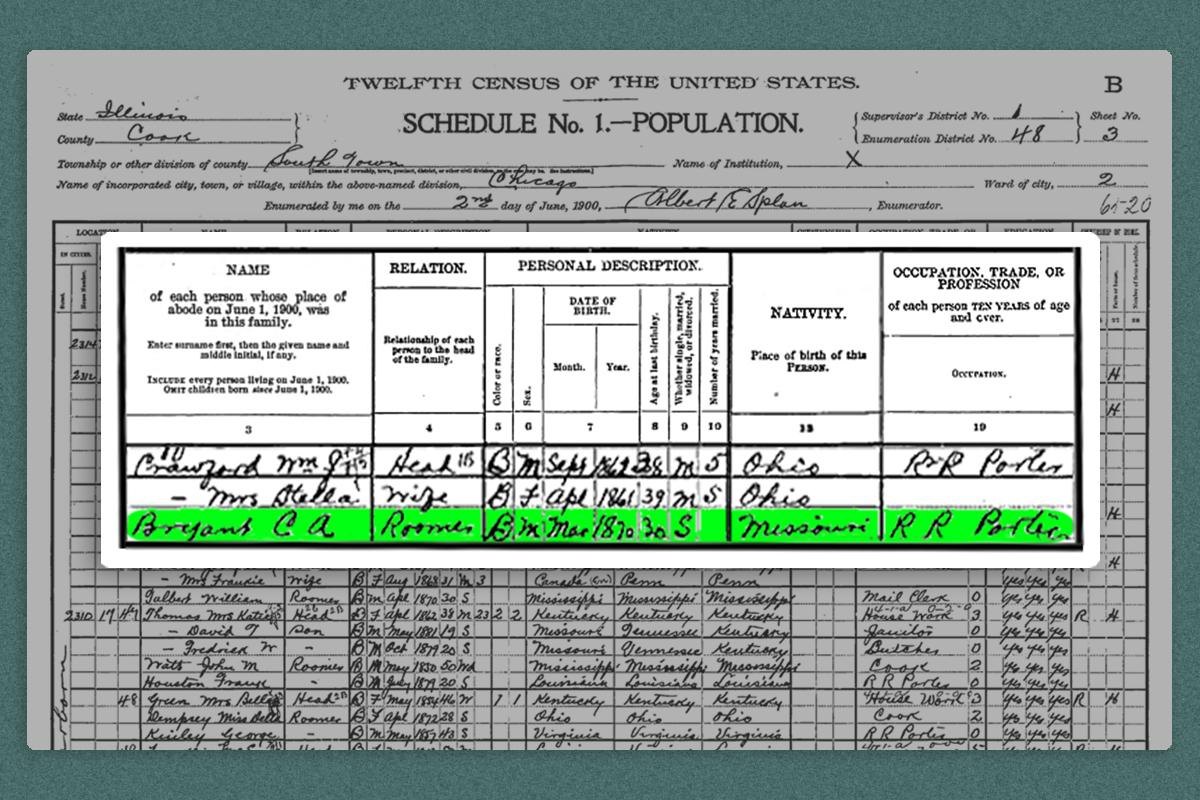 TWELFTH CENSUS OF THE UNITED STATES.
B
State Illinois
County Cook
SCHEDULE No. 1.—POPULATION.
Supervisor's District No. 1
Enumeration District No. 48
Sheet No.
3
Township or other division of county South Town
Name of Institution, X
Name of incorporated city, town, or village, within the above-named division, Chicago
Ward of city, 2
Enumerated by me on the 2nd day of June, 1900, Albert E Splan, Enumerator.
65-20
IN CITIES.
NAME
of each person whose place of
abode on June 1, 1900, was
in this family.
Enter surname first, then the given name and
middle initial, if any.
INCLUDE every person living on June 1, 1900.
OMIT children born since June 1, 1900.
RELATION.
Relationship of each
person to the head
of the family.
PERSONAL DESCRIPTION.
Color or race.
Sex.
DATE OF
BIRTH.
Month. Year.
Age at last birthday.
Whether single, married,
widowed, or divorced.
Number of years married.
NATIVITY.
Place of birth of this
PERSON.
OCCUPATION, TRADE, OR
PROFESSION
of each person TEN YEARS of age
and over.
OCCUPATION.
3 4 5 6 7 8 9 10 13 19
Crawford Wm J Head B M Sept 1862 38 M 5 Ohio R R Porter
— Mrs Stella Wife B F Apl 1861 39 M 5 Ohio
Bryant C A Roomer B M Mar 1870 30 S Missouri R R Porter
— Mrs Frankie Wife B F Aug 1868 31 M 3 Canada (En) Penn Penn yes yes yes
Talbert William Roomer B M Apl 1870 30 S Mississippi Mississippi Mississippi Mail Clerk 0 yes yes yes
2310 17 47 Thomas Mrs Katie Head B F Apl 1862 38 M 23 2 2 Kentucky Kentucky Kentucky House Work 3 yes yes yes R H
— David Son B M May 1881 19 S Missouri Tennessee Kentucky Janitor 0 yes yes yes
— Fredrick W — B M Oct 1879 20 S Missouri Tennessee Kentucky Butcher 0 yes yes yes
Watt John M Roomer B M May 1850 50 Wd Mississippi Mississippi Mississippi Cook 2 yes yes yes
Houston Frank — B M July 1879 20 S Louisiana Louisiana Louisiana R R Porter 0 yes yes yes
48 Green Mrs Belle Head B F May 1854 46 W 1 1 Kentucky Kentucky Kentucky House Work 3 yes yes yes R H
Dempsey Miss Belle Roomer B F Apl 1872 28 S Ohio Ohio Ohio Cook 2 yes yes yes
Kinley George — B M May 1857 43 S Virginia Virginia Virginia R R Porter 0 yes yes yes